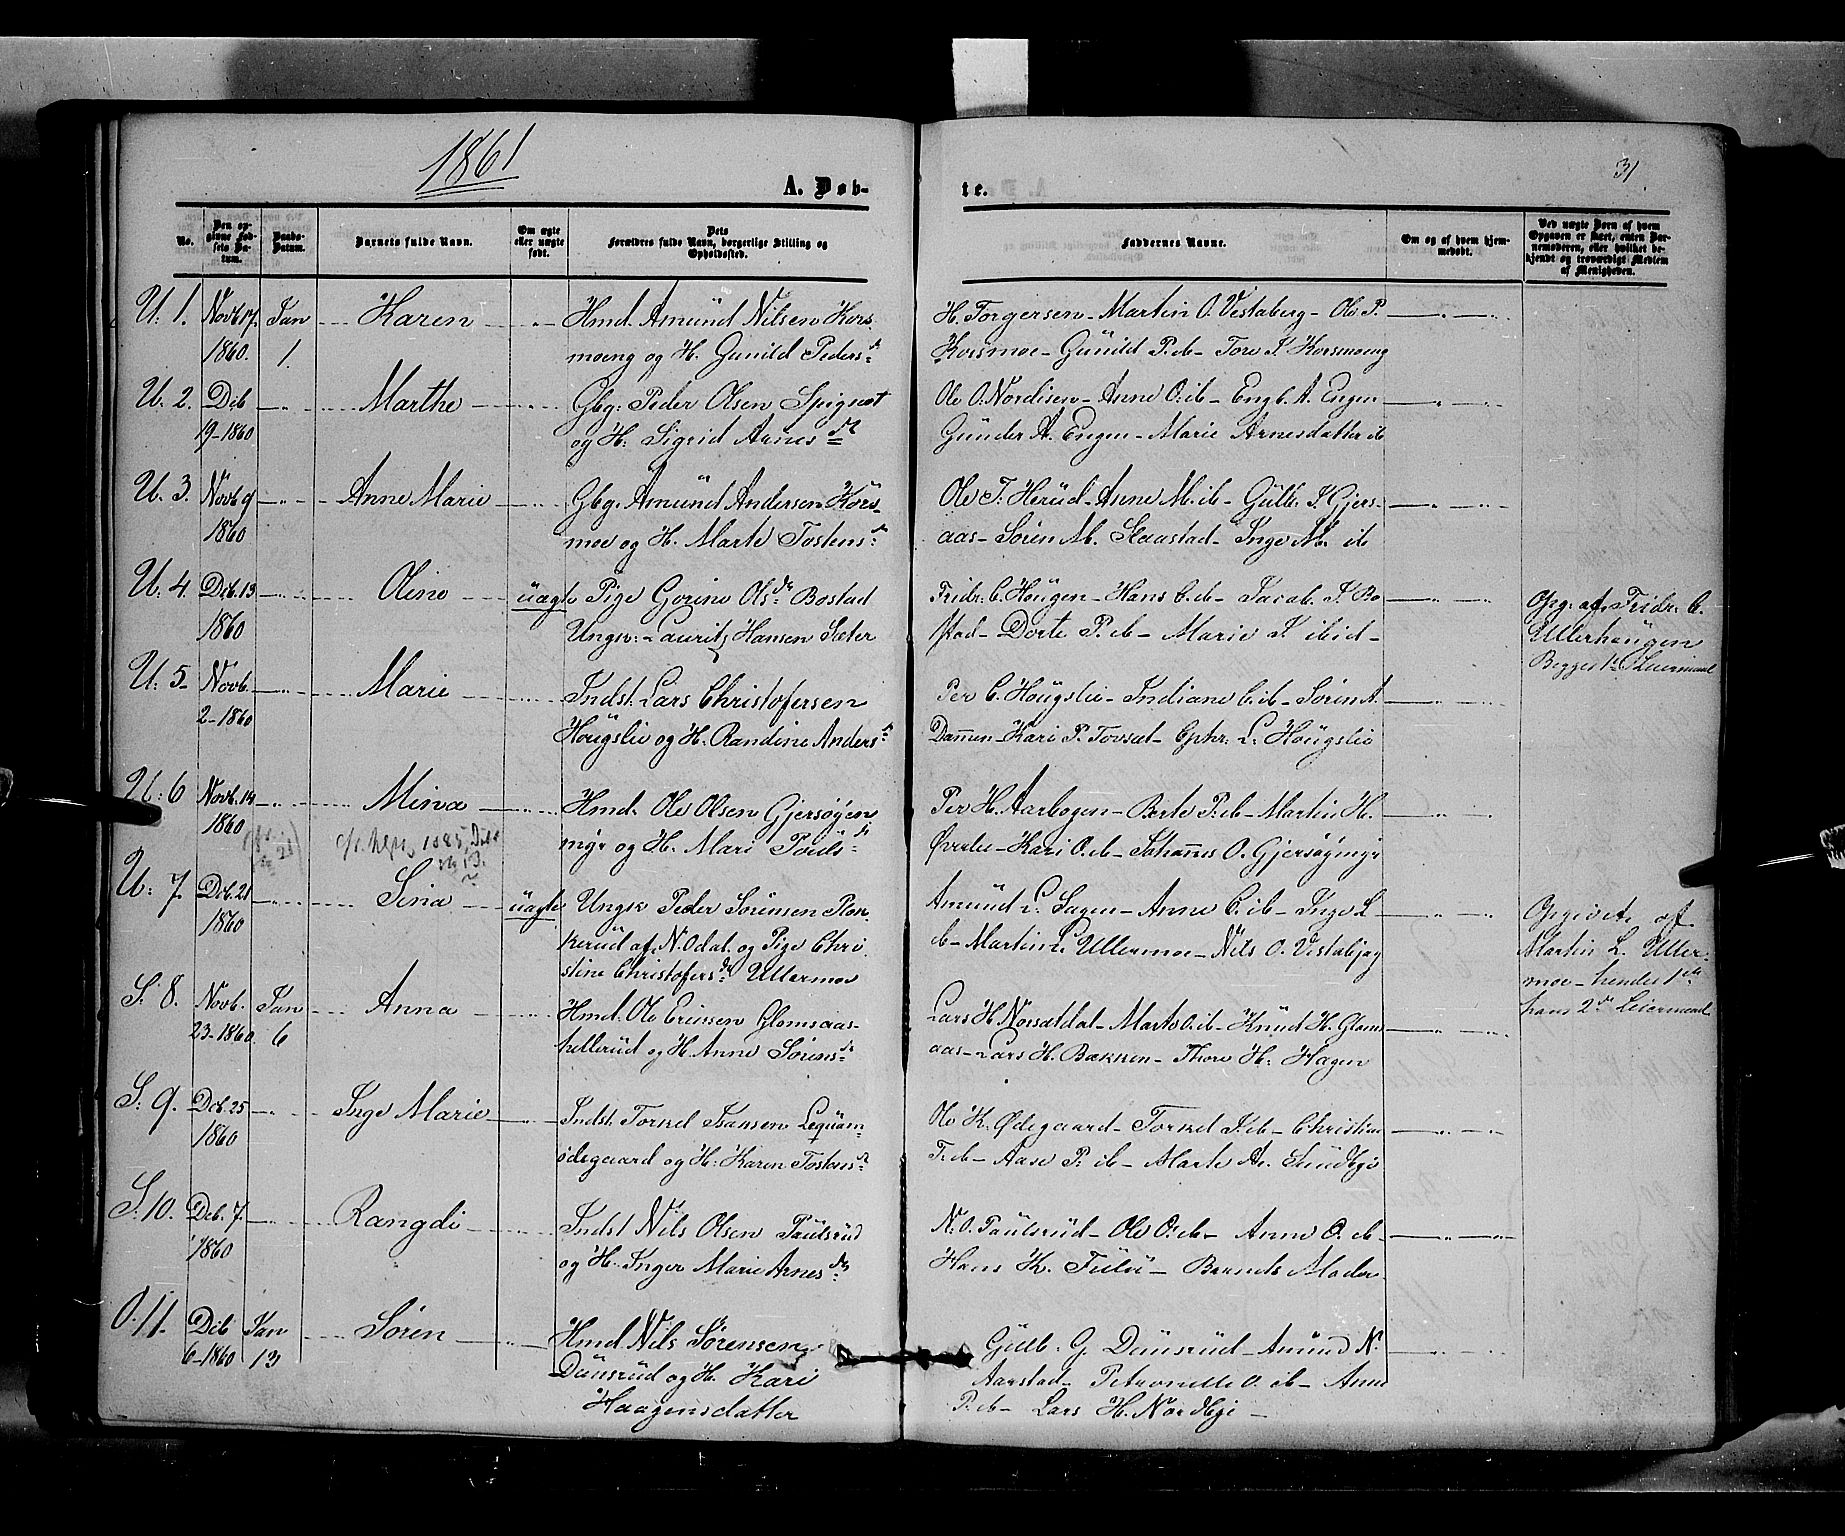 1861
31
A. Døb-
te.
No.
Den opgivne Fødsels Datum.
Daabs-Datum.
Barnets fulde Navn.
Om ægte eller uægte født.
Dets Forældres fulde Navn, borgerlige Stilling og Opholdssted.
Faddernes Navne.
Om og af hvem hjemmedøbt.
Ved uægte Børn af hvem Opgaven er skeet, enten Barnemoderen, eller hvilket bekjendt og troværdigt Medlem af Menigheden.
U. 1. Novb 17. Jan Karen Hmd. Amünd Nilsen Kors
1860. 1. moeng og H. Gunild Peders dr
H. Torgersen – Martin O. Vestaberg – Ole P.
Korsmoe – Günild P. ib – Tore P Korsmoeng
U. 2. Deb Marthe Gbg: Peder Olsen Spigset
19-1860 og H. Sigrid Arnes dr
Ole O. Nordisen – Anne O. ib – Engb. A. Engen
Günder A. Engen – Marie Arnesdatter ib
U. 3. Novb 9 Anne Marie Gbg. Amünd Andersen Kors-
1860 moe og H. Marte Tostens dr
Ole T. Herüd – Anne M. ib – Gülb. J. Gjers-
aas – Søren M. Skaastad – Inge M. ib
U. 4. Deb. 13 Oline üægte Pige Gorine Ols dr Bostad
1860 Ungkr: Lauritz Hansen Sæter
Fridr. C. Høügen – Hans C. ib – Jacob. J. Bo
stad – Dorte P. ib – Marie J. ibid –
Opg. af Fridr. C.
Ullerhaugen
Begges 1ste Leiermaal
U. 5 Novb. Marie Indst: Lars Christofersen
2-1860 Høügslie og H. Randine Anders dr
Per C. Høügslie – Indiane C. ib – Søren A.
Dammen – Kari P. Torsæt – Cphr. L. Høügslie
U. 6 Novb. 14 Mina Hmd. Ole Olsen Gjersøyen
1860 myr og H. Mari Poüls dr
Per H. Aarbogen – Berte P. ib – Martin H.
Øverlie – Kari O. ib – Johannes O. Gjersøymyr
1885,
U. 7. Deb. 21 Sina üægte Ungk Peder Sørensen Plok
1860 kerüd af N. Odal. og Pige Chri
stine Christofers dr Ullermoe
Amünd L. Sagen – Anne C. ib – Inge L
ib – Martin L Ullermoe – Nils O. Vestabjag
Opgivet af
Martin L. Uller-
moe – hendes 1ste
hans 2det Leiermaal
S. 8. Novb. Jan Anna Hmd. Ole Erissen Glomsaas-
23-1860 6 kellerüd og H. Anne Sørens dr
Lars H. Norsætdal – Marte O. ib – Knüd H. Glams
aas – Lars H. Bækken – Thore H. Hagen
S. 9. Deb. 25 Inge Marie Indst. Torkel Isansen Leqüam-
1860 ødegaard og H. Karen Tostens dr
Ole K. Ødegaard – Torkel J. ib – Christian
T. ib – Aase P. ib – Marte A. Sündbye
S. 10. Deb. 7. Rangdi Indst Nils Olsen Paülsrüd
1860 og H. Inger Marie Arnes dr
N. O. Paülsrüd – Ole O. ib – Anne O. ib –
Hans K. Fülü – Barnets Moder
O. 11. Deb Jan Søren Hmd. Nils Sørensen
6-1860 13 Dünsrüd og H. Kari
Haagensdatter
Gülb. G Dünsrüd – Amünd N.
Aarstad – Petronelle O. ib – Anne
P. ib – Lars H. Nordbye –